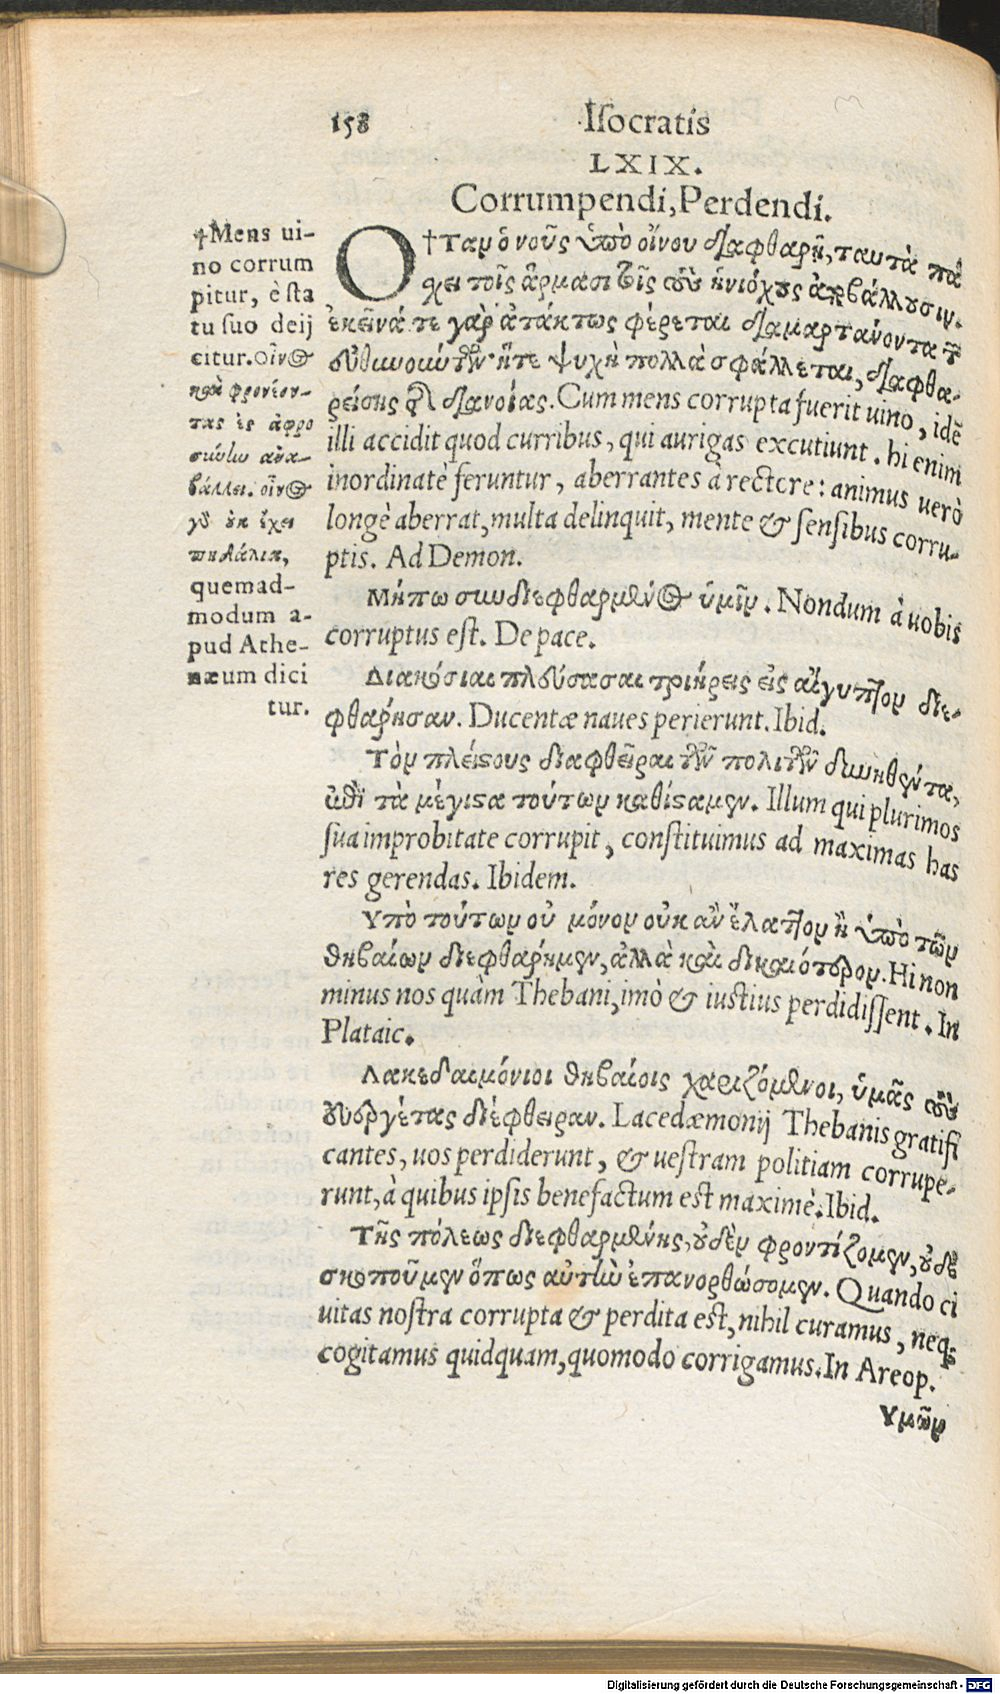 158 Isocratis
LXIX.
Corrumpendi, Perdendi.
†Mens ui-
no corrum
pitur, è sta
tu suo deij
citur. οἶνος
καὶ φρονέον-
τας ἐς ἀφρο
σύνην ἀνα-
βάλλει. οἶνος
γὰρ οὐκ ἔχει
πηδάλια,
quemad-
modum a-
pud Athe-
næum dici
tur.
Ο†Ταν ὁ νοῦς ὑπὸ οἴνου διαφθαρῇ, ταυτὰ πά
σχει τοῖς ἅρμασι τοῖς τοὺς ἡνιόχους ἀποβάλλουσιν.
ἐκεῖνά τε γὰρ ἀτάκτως φέρεται διαμαρτάνοντα τῶν
εὐθυνούντων· ἥτε ψυχὴ πολλὰ σφάλλεται, διαφθα-
ρείσης τῆς διανοίας. Cum mens corrupta fuerit uino, idē
illi accidit quod curribus, qui aurigas excutiunt. hi enim
inordinatè feruntur, aberrantes à rectore: animus uerò
longè aberrat, multa delinquit, mente & sensibus corru-
ptis. Ad Demon.
Μήπω συνδιεφθαρμένος ὑμῖν. Nondum à uobis
corruptus est. De pace.
Διακόσιαι πλεύσασαι τριήρεις εἰς αἴγυπτον διε-
φθάρησαν. Ducentæ naues perierunt. Ibid.
Τὸν πλείςους διαφθεῖραι τῶν πολιτῶν δυνηθέντα,
ἐπὶ τὰ μέγιςα τούτων καθίςαμεν. Illum qui plurimos
sua improbitate corrupit, constituimus ad maximas has
res gerendas. Ibidem.
Υπὸ τούτων οὐ μόνον οὐκ ἂν ἔλαττον ἢ ὑπὸ τῶν
θηβαίων διεφθάρημεν, ἀλλὰ καὶ δικαιότερον. Hi non
minus nos quàm Thebani, imò & iustius perdidissent. In
Plataic.
Λακεδαιμόνιοι θηβαίοις χαριζόμενοι, ὑμᾶς τοὺς
εὐεργέτας διέφθειραν. Lacedæmonij Thebanis gratifi
cantes, uos perdiderunt, & uestram politiam corrupe-
runt, à quibus ipsis benefactum est maximè. Ibid.
Τῆς πόλεως διεφθαρμένης, οὐδὲν φροντίζομεν, οὐδὲ
σκοποῦμεν ὅπως αὐτὴν ἐπανορθώσομεν. Quando ci
uitas nostra corrupta & perdita est, nihil curamus, neq;
cogitamus quidquam, quomodo corrigamus. In Areop.
Υμῶν
Digitalisierung gefördert durch die Deutsche Forschungsgemeinschaft - DFG